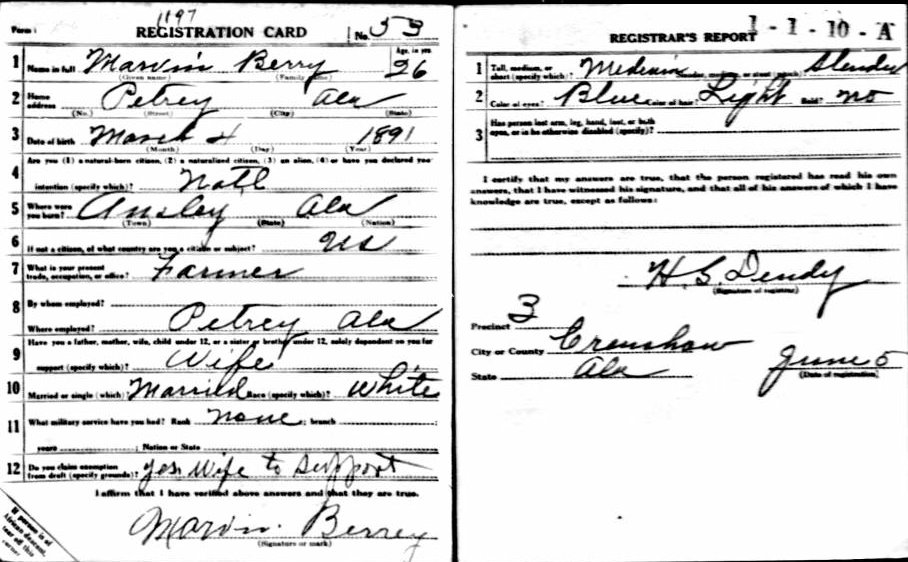 1197
Form 1 REGISTRATION CARD No. 53
1 Name in full Marvin Berry Age, in yrs 26
(Given name) (Family name)
2 Home address Petrey Ala
(No.) (Street) (City) (State)
3 Date of birth March 4 1891
(Month) (Day) (Year)
Are you (1) a natural-born citizen, (2) a naturalized citizen, (3) an alien, (4) or have you declared your
4 intention (specify which)? Natl
5 Where were you born? Ansley Ala
(Town) (State) (Nation)
6 If not a citizen, of what country are you a citizen or subject? US
7 What is your present trade, occupation, or office? Farmer
8 By whom employed?
Where employed? Petrey Ala
9 Have you a father, mother, wife, child under 12, or a sister or brother under 12, solely dependent on you for
support (specify which)? Wife
10 Married or single (which)? Married Race (specify which)? White
11 What military service have you had? Rank none; branch
years ; Nation or State
12 Do you claim exemption from draft (specify grounds)? Yes Wife to Support
I affirm that I have verified above answers and that they are true.
Marvin Berrey
(Signature or mark)
If person is of
African descent,
tear off this
corner
1-1-10-A
REGISTRAR'S REPORT
1 Tall, medium, or short (specify which)? Medium Slender, medium, or stout (which)? Slender
2 Color of eyes? Blue Color of hair? Light Bald? no
3 Has person lost arm, leg, hand, foot, or both
eyes, or is he otherwise disabled (specify)?
I certify that my answers are true, that the person registered has read his own
answers, that I have witnessed his signature, and that all of his answers of which I have
knowledge are true, except as follows:
H. S. Dendy
(Signature of registrar)
Precinct 3
City or County Crenshaw
State Ala June 5
(Date of registration)